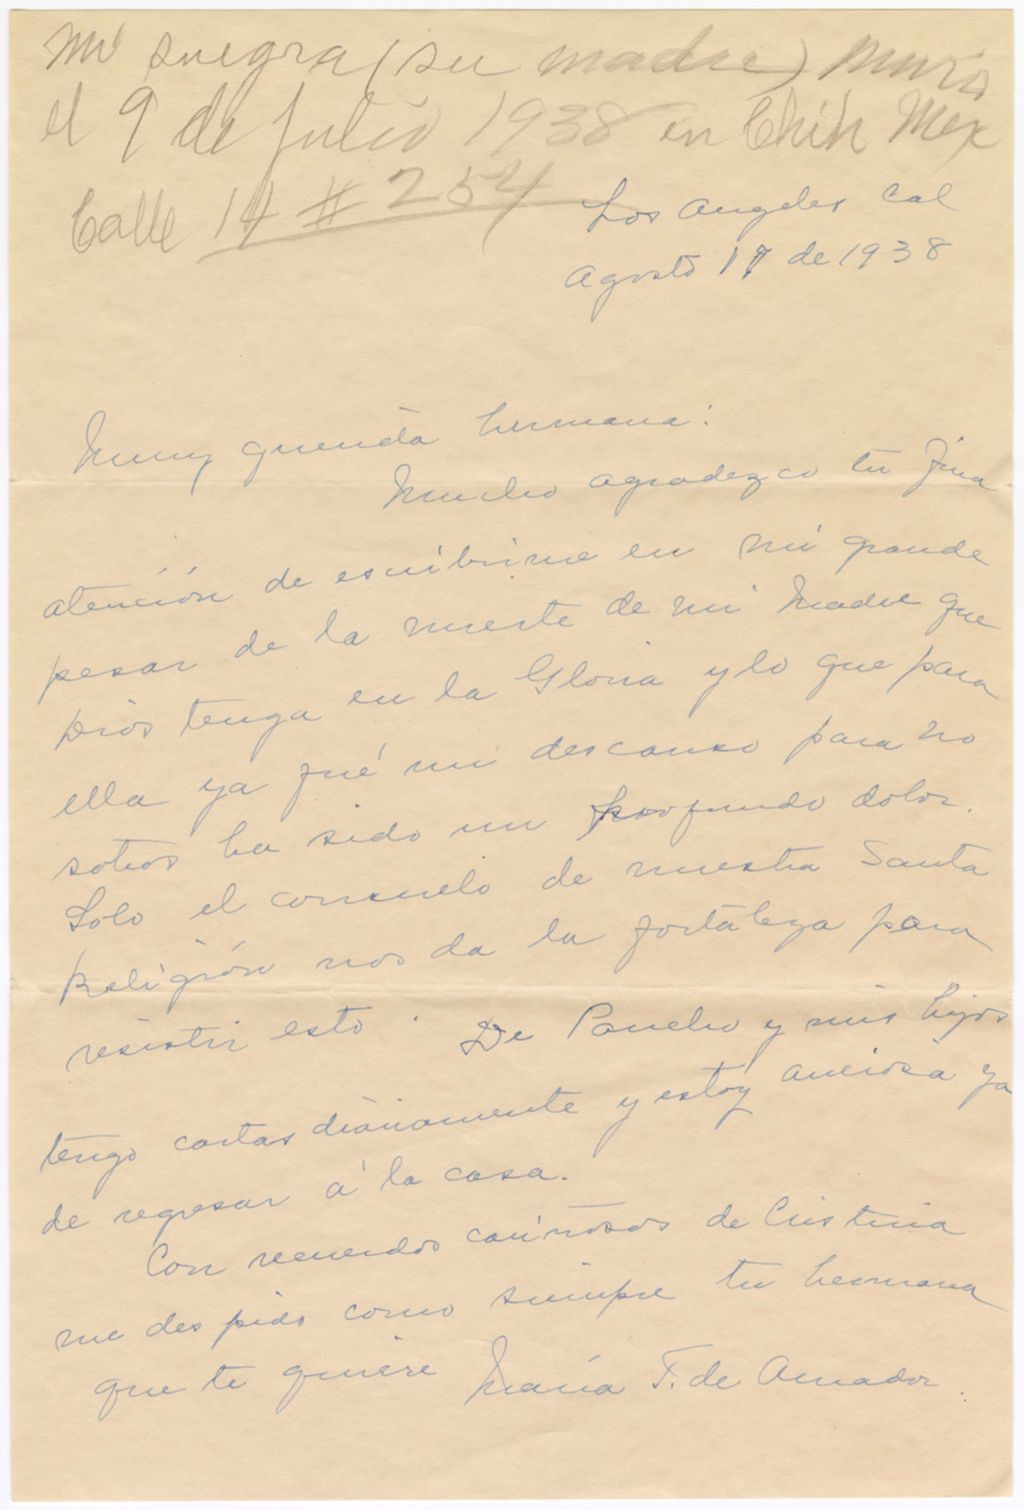 Mi suegra (su madre) murio
el 9 de Julio 1938 en Chih Mex
Calle 14 # 254
Los Angeles Cal
Agosto 17 de 1938
Muy querida hermana:
Mucho agradezco tu fina
atención de escribirme en mi grande
pesar de la muerte de mi Madre que
Dios tenga en la Gloria y lo que para
ella ya fué un descanso para no
sotros ha sido un porfundo dolor.
Solo el consuelo de nuestra Santa
Religión nos da la fortaleza para
resistir esto. De Pancho y mis hijos
tengo cartas diariamente y estoy anciosa ya
de regresar á la casa.
Con recuerdos cariñosos de Cristina
me despido como siempre tu hermana
que te quiere María F. de Amador.